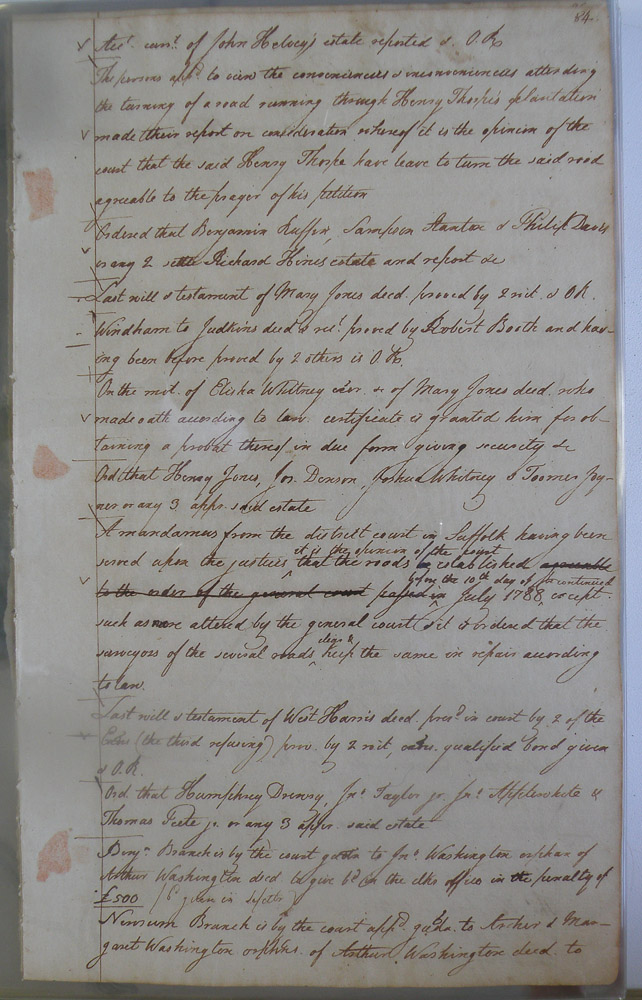 84.
Acct. curt. of John Helvey's estate reported & O.R.
The persons appd. to view the conveniencies & inconveniencies attending
the turning of a road running through Henry Thorpe's plantation
made their report on consideration whereof it is the opinion of the
court that the said Henry Thorpe have leave to turn the said road
agreable to the prayer of his petition
Ordered that Benjamin Ruffin, Sampson & Philip Davis
or any 2 settle Richard Hines estate and report &c
Last will & testament of Mary Jones decd. proved by 2 wit. & OR.
Windham to Judkins deed & rect. proved by Robert Booth and hav-
ing been before proved by 2 others is O R.
On the mot. of Elisha Whitney exor. &c of Mary Jones decd. who
made oath according to law. certificate is granted him for ob-
taining a probat thereof in due form giving security &c
Ord that Henry Jones, Jos. Denson, Joshua Whitney & Toomer Joy-
ner or any 3 appr. said estate
A mandamus from the district court in Suffolk having been
it is the opinion of the court
served upon the justices that the roads established agreeable
before the 10th day of be continued
to the order of the general court passed in July 1788, except
such as were altered by the general court & it is ordered that the
clear &
surveyors of the several roads keep the same in repair according
to law.
Last will & testament of West Harris decd. presd. in court by 2 of the
Exors (the third refusing) prov. by 2 wit, exors. qualified bond given
& O.R.
Ord that Humphrey Drewry, Jno. Taylor jr. Jno. Applewhite &
Thomas Peete jr. or any 3 appr. said estate
Benjn. Branch is by the court gardn to Jno. Washington orphan of
Arthur Washington decd to give bd. in the clks office in the penalty of
£500 (bd. given in
Newsum Branch is by the court appd. gudn. to Archer & Mar-
garet Washington orphns. of Arthur Washington decd. to